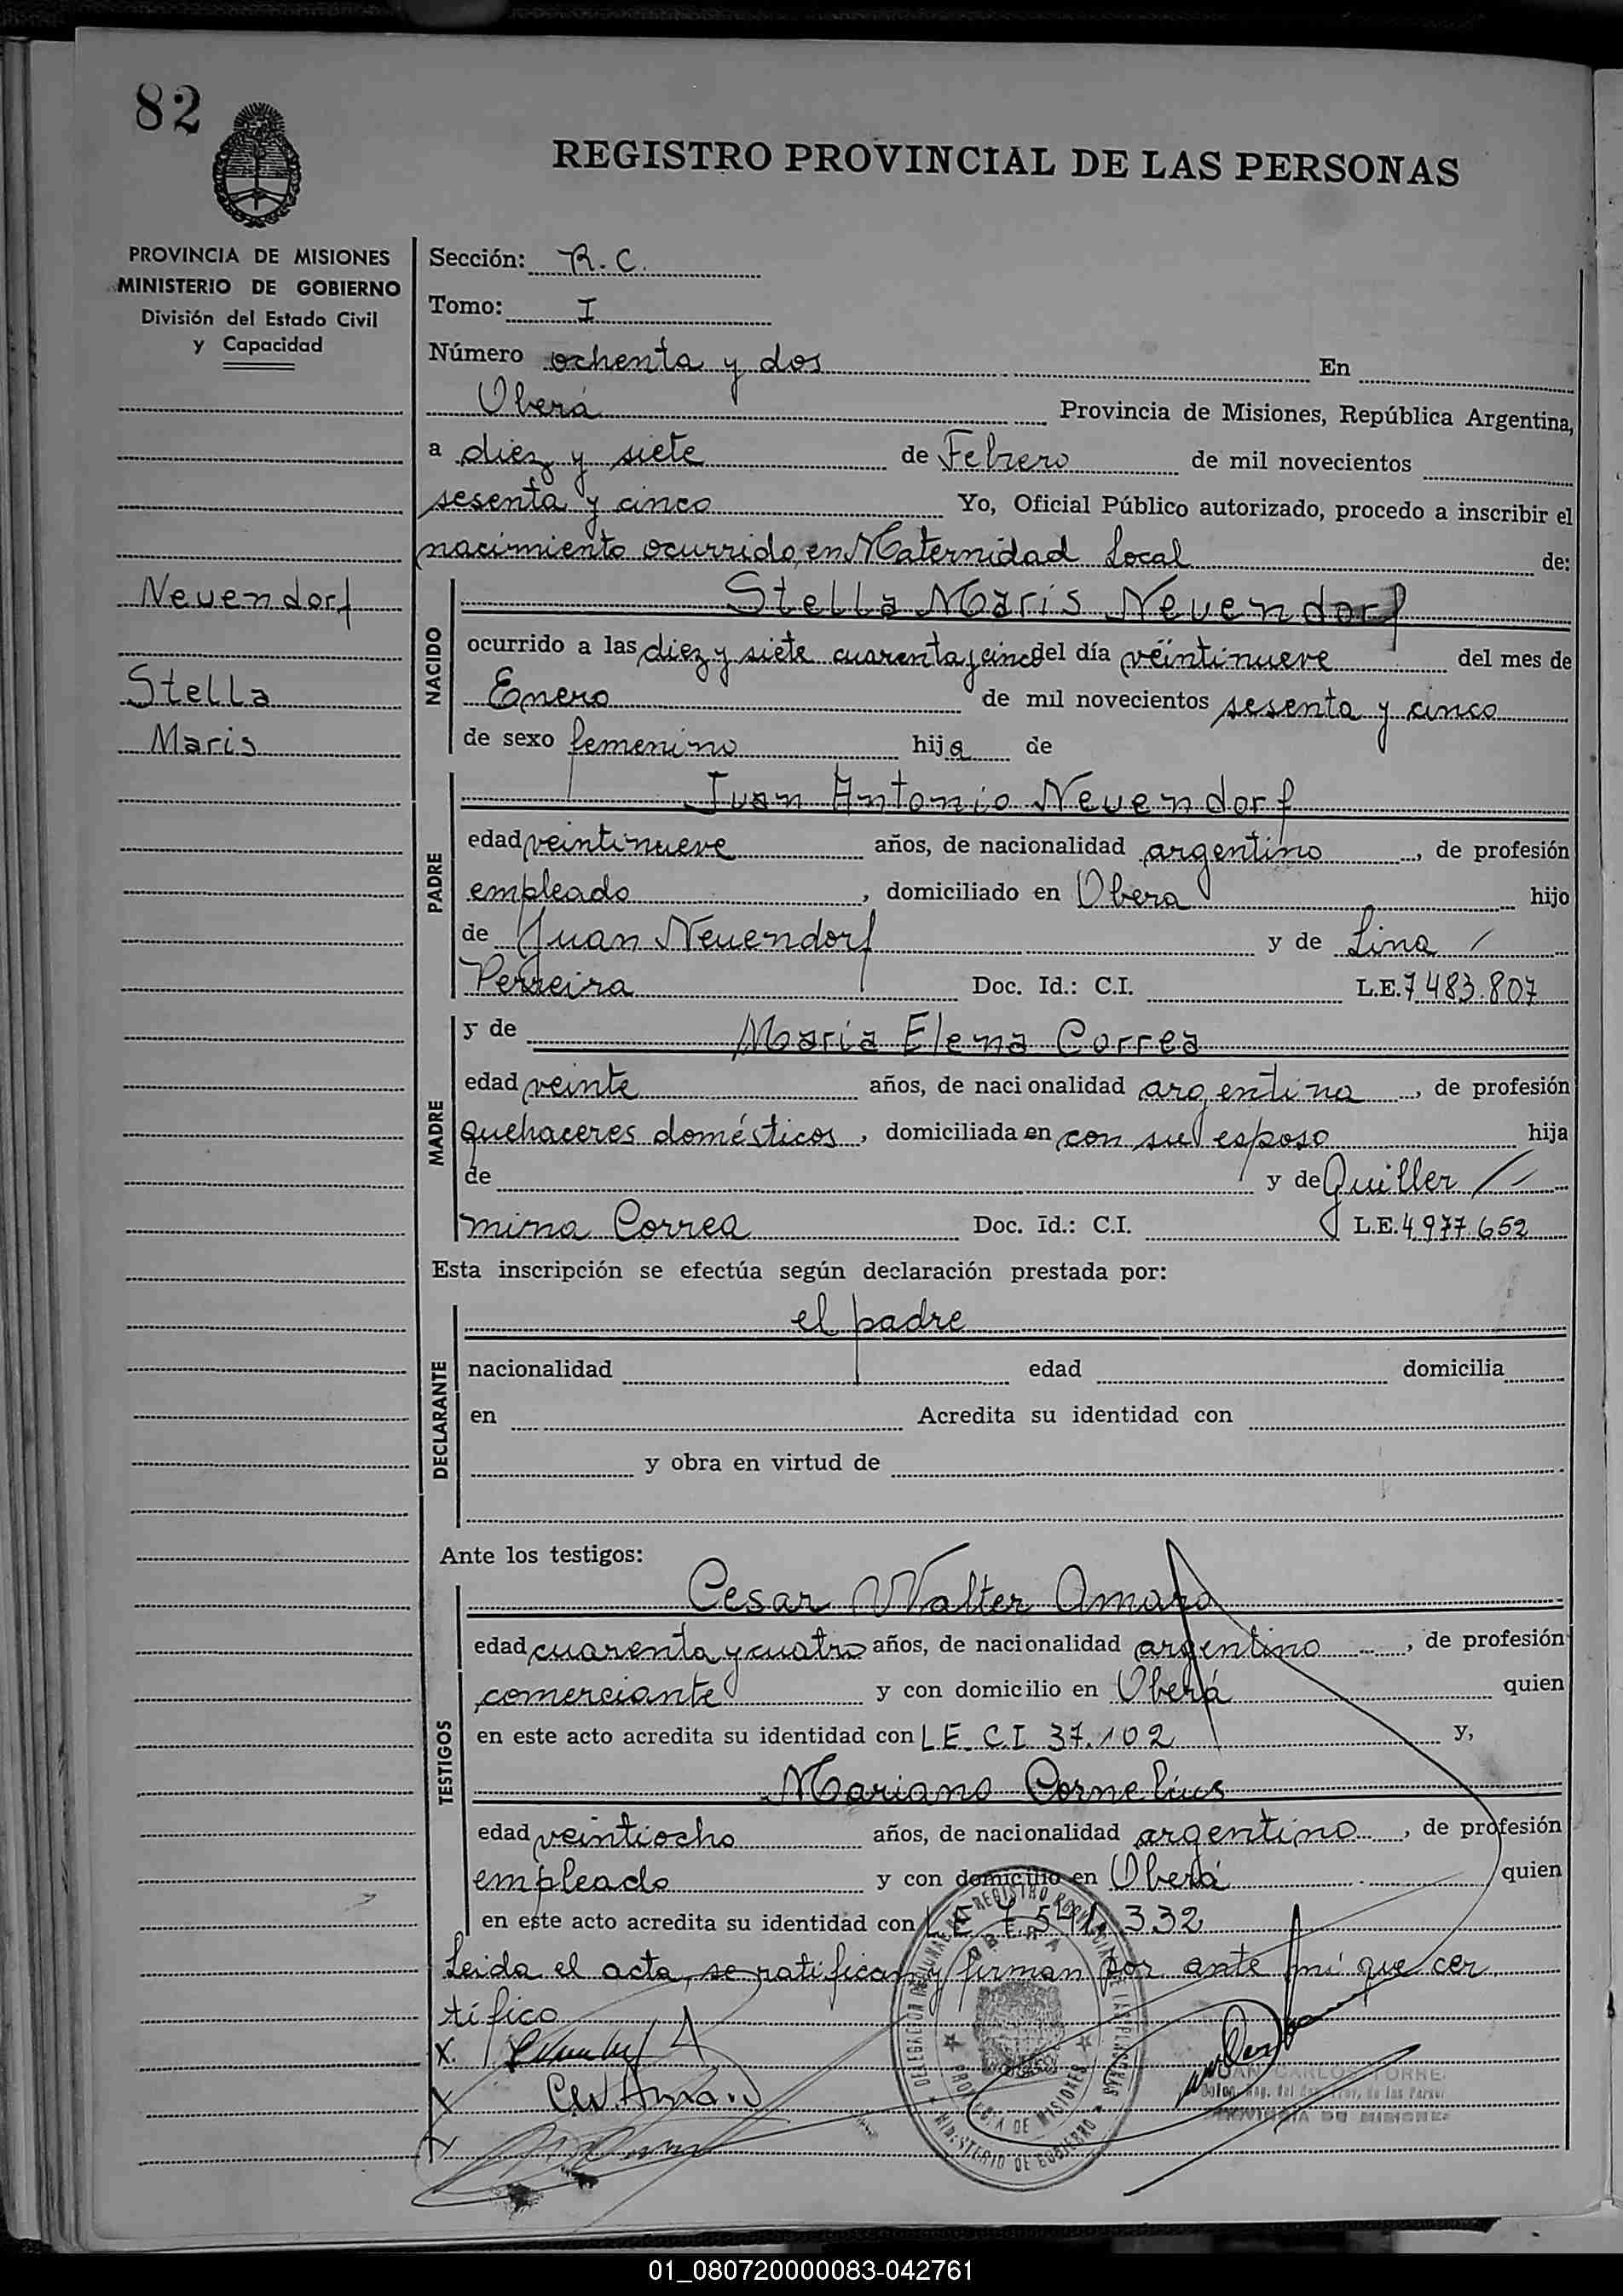 82
REGISTRO PROVINCIAL DE LAS PERSONAS
PROVINCIA DE MISIONES
MINISTERIO DE GOBIERNO
División del Estado Civil
y Capacidad
Neuendorf
Stella
Maris
Sección: R. C.
Tomo: I
Número ochenta y dos En
Oberá Provincia de Misiones, República Argentina,
a diez y siete de Febrero de mil novecientos
sesenta y cinco Yo, Oficial Público autorizado, procedo a inscribir el
nacimiento ocurrido en Maternidad Local de:
NACIDO
Stella Maris Neuendorf
ocurrido a las diez y siete cuarenta y cinco del día veintinueve del mes de
Enero de mil novecientos sesenta y cinco
de sexo femenino hija de
PADRE
Juan Antonio Neuendorf
edad veintinueve años, de nacionalidad argentino, de profesión
empleado, domiciliado en Obera hijo
de Juan Neuendorf y de Lina /
Perreira Doc. Id.: C.I. L.E. 7 483.807
MADRE
y de María Elena Correa
edad veinte años, de nacionalidad argentina, de profesión
quehaceres domésticos, domiciliada en con su esposo hija
de y de Guiller /
mina Correa Doc. Id.: C.I. L.E. 4 977.652
Esta inscripción se efectúa según declaración prestada por:
DECLARANTE
el padre
nacionalidad edad domicilia
en Acredita su identidad con
y obra en virtud de
Ante los testigos:
TESTIGOS
Cesar Walter Amaro
edad cuarenta y cuatro años, de nacionalidad argentino, de profesión
comerciante y con domicilio en Oberá quien
en este acto acredita su identidad con L E. C.I 37.102 y,
Mariano Cornelius
edad veintiocho años, de nacionalidad argentino, de profesión
empleado y con domicilio en Oberá quien
en este acto acredita su identidad con L E 7.541.332
Leida el acta, se ratifican y firman por ante mí que cer
tifico
X.
X
X
OBERA
PROVINCIA DE MISIONES
MINISTERIO DE GOBIERNO
JUAN CARLOS TORRE
PROVINCIA DE MISIONES
01_080720000083-042761